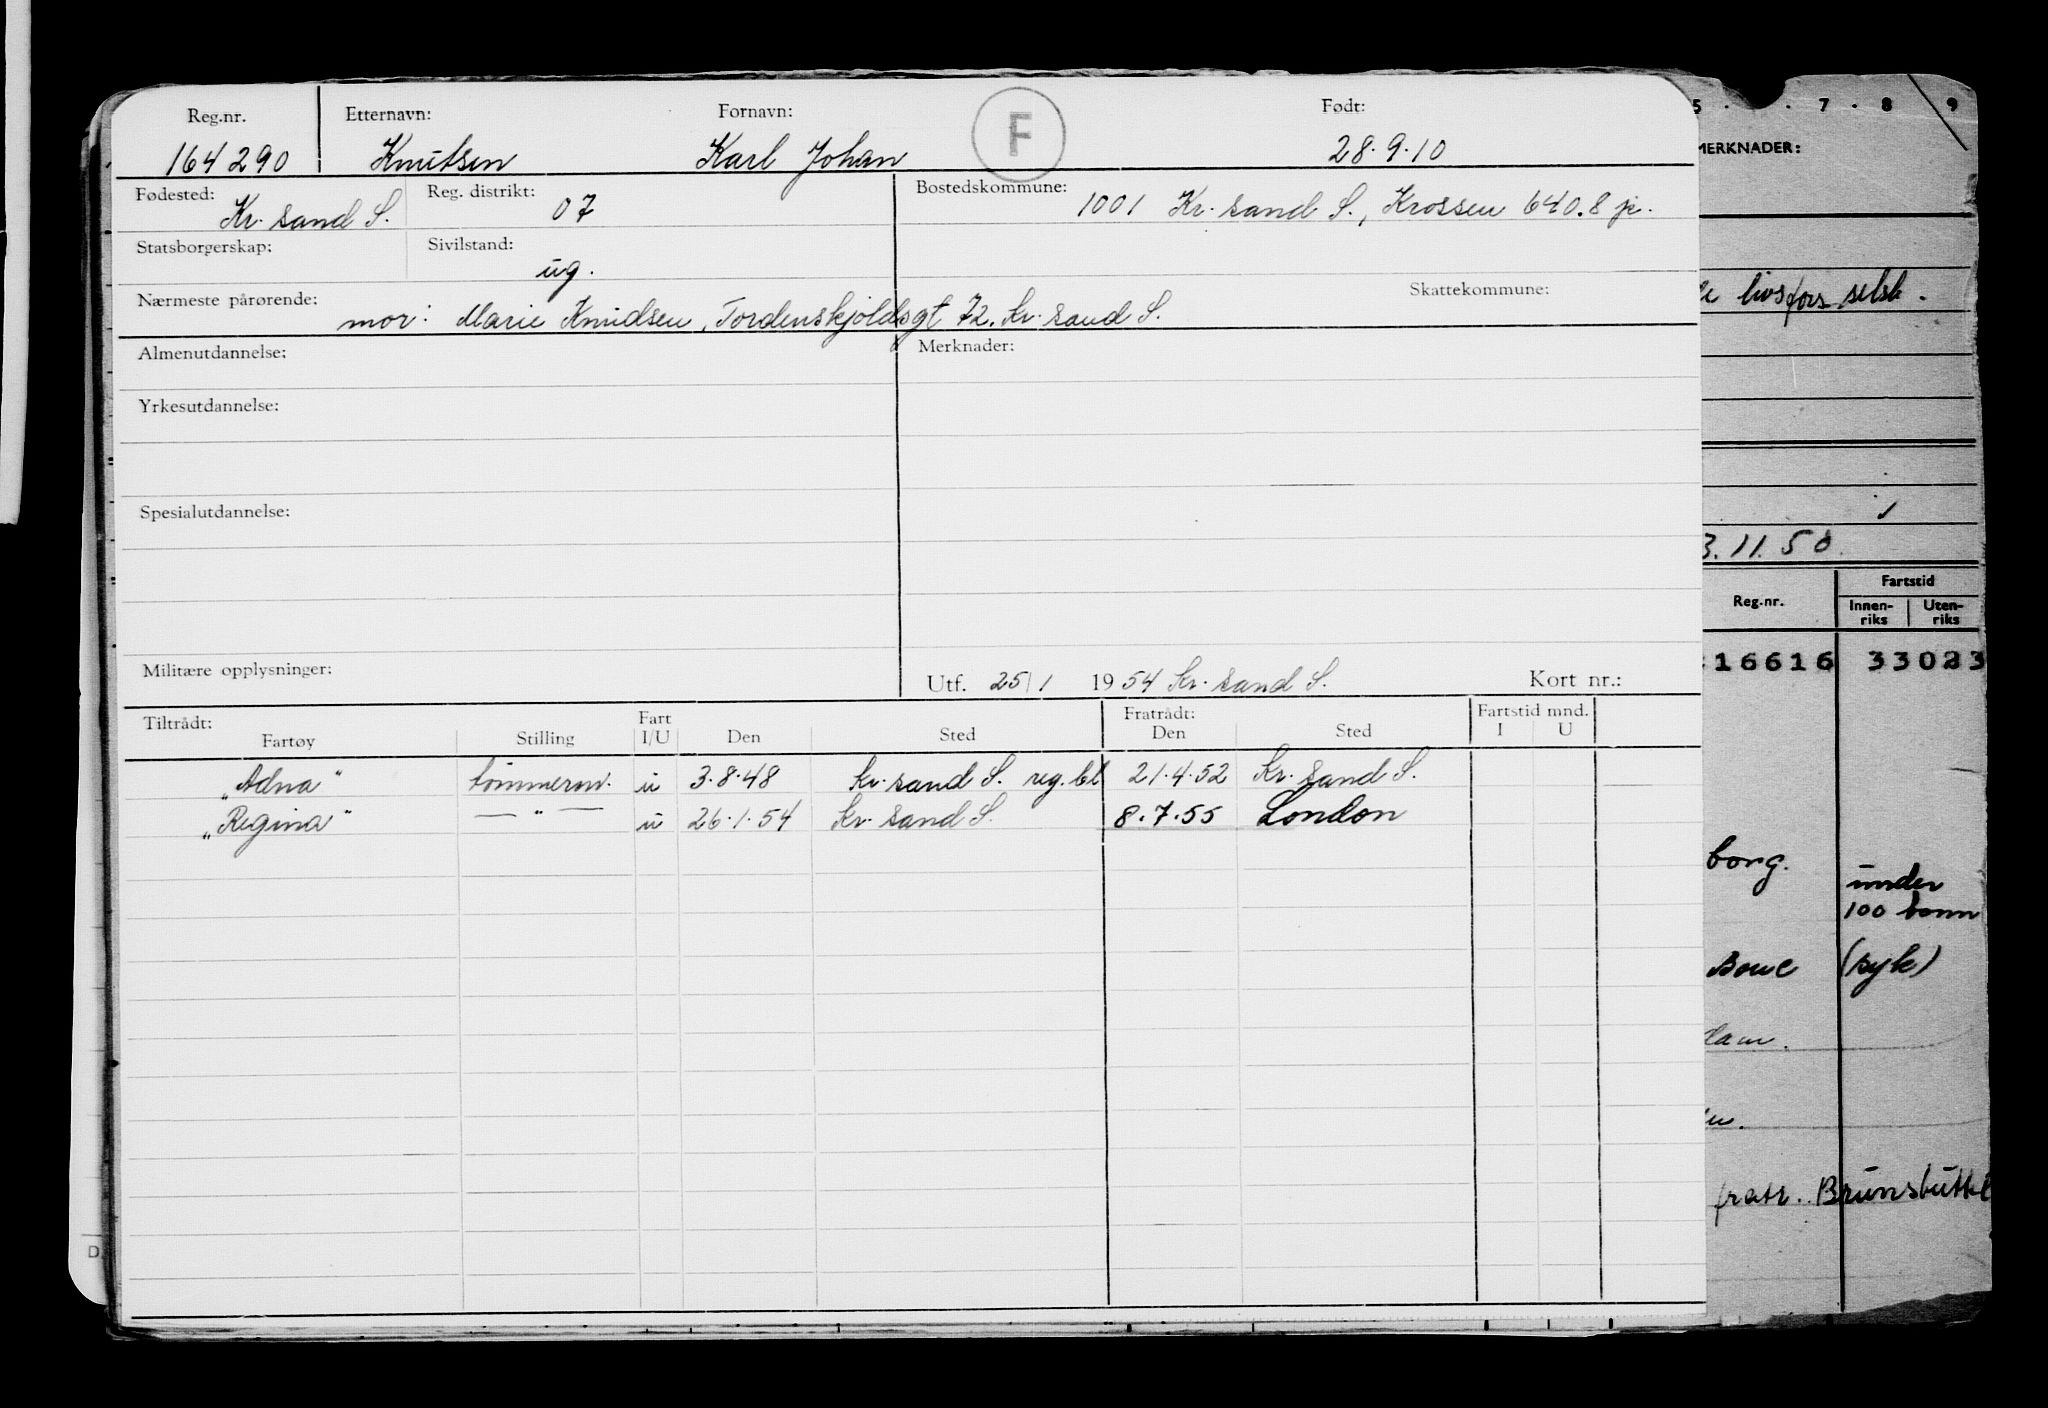 Reg.nr. Etternavn: Fornavn: F Født:
164290 Knutsen Karl Johan 28.9.10
Fødested: Reg. distrikt: Bostedskommune:
Kr. sand S. 07 1001 Kr. sand S., Krossen 640.8
Statsborgerskap: Sivilstand:
ug.
Nærmeste pårørende: Skattekommune:
mor: Marie Knudsen, Tordenskjoldsgt 72. Kr. sand S.
Almenutdannelse: Merknader:
Yrkesutdannelse:
Spesialutdannelse:
Militære opplysninger: Utf. 25/1 1954 Kr. sand S. Kort nr.:
Tiltrådt: Fart Fratrådt: Fartstid mnd.
Fartøy Stilling I/U Den Sted Den Sted I U
"Adna" tømmerm. u 3.8.48 Kr. sand S. reg. bl 21.4.52 Kr. sand S.
"Regina" — " — u 26.1.54 Kr. sand S. 8.7.55 London
5 . . 7 . 8 9
MERKNADER:
livsfors selsk.
3.11.50.
Reg.nr. Fartstid
Innen-riks Uten-riks
16616 33023
borg. under
100 tonn
Bowe (syk)
dam.
fratr. Brunsbüttel
D.